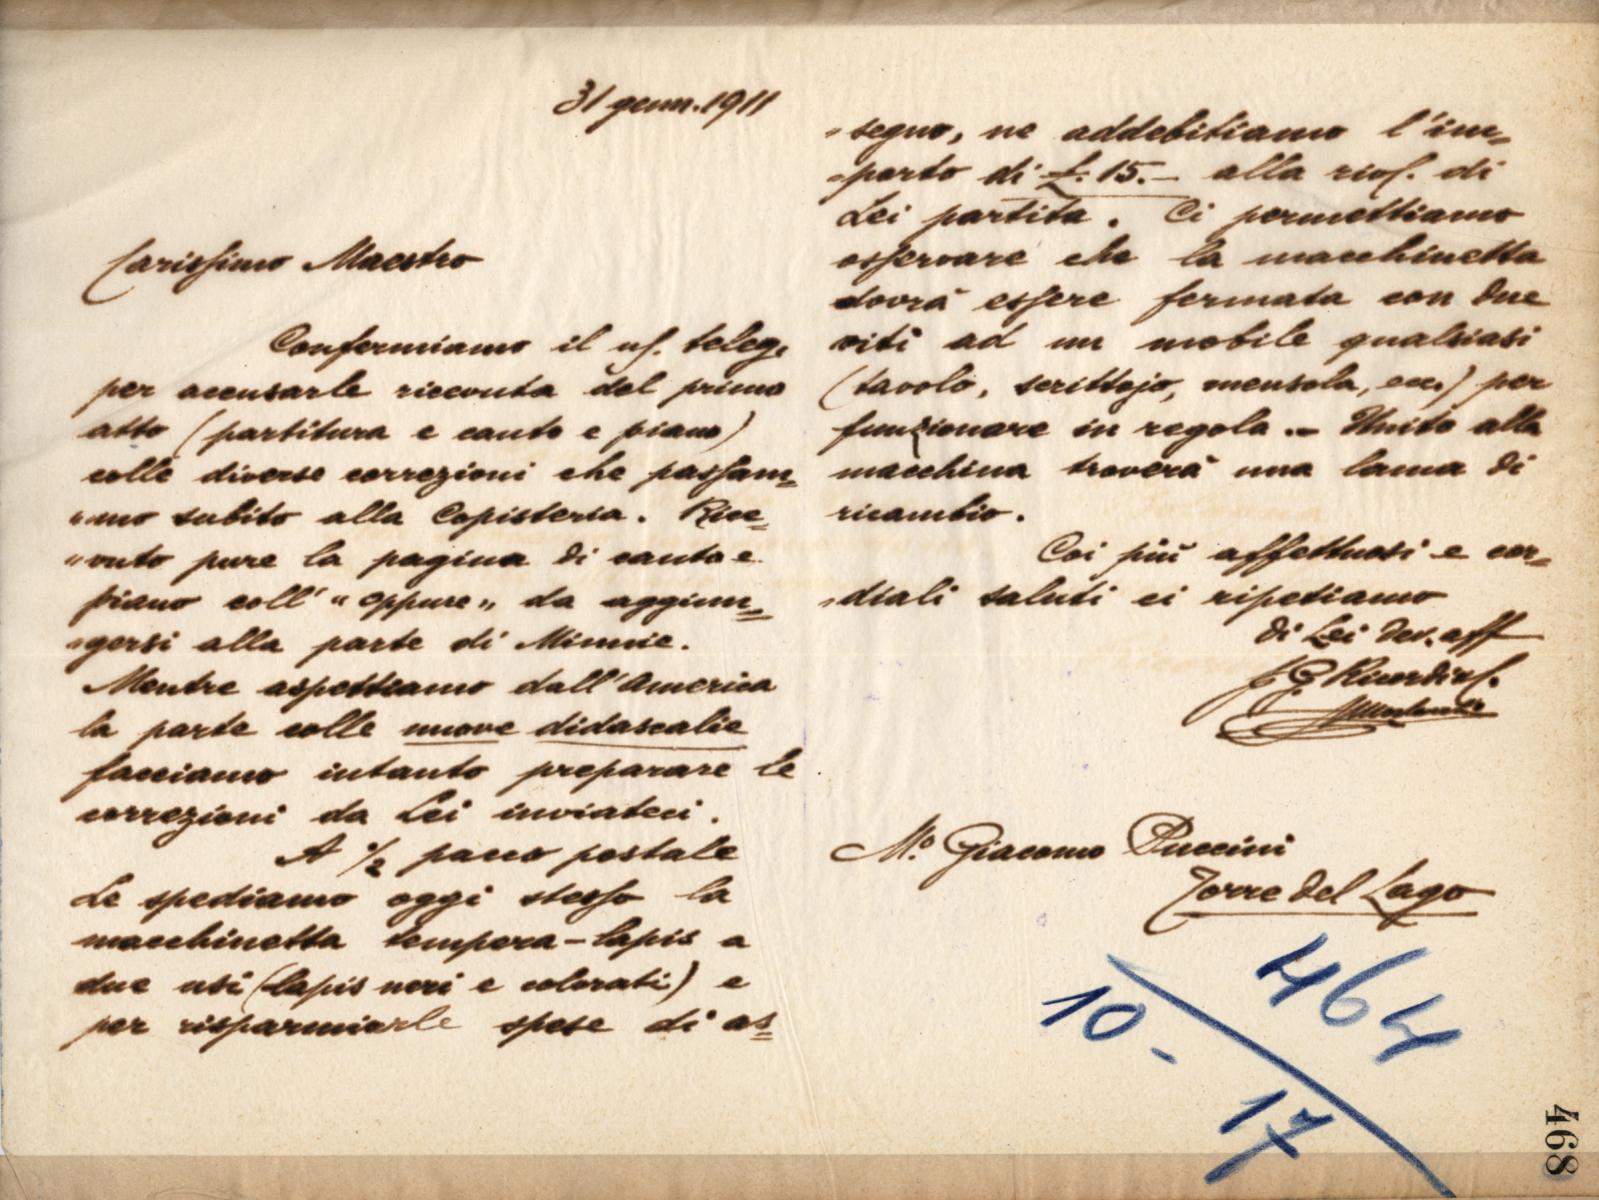 31 genn. 1911
Carissimo Maestro
Confermiamo il ns. teleg.
per accusarle ricevuta del primo
atto (partitura e canto e piano)
colle diverse correzioni che passia=
"mo subito alla Copisteria. Rice=
"vuto pure la pagina di canto e
piano coll' "oppure" da aggiun=
"gersi alla parte di Minnie.
Mentre aspettiamo dall'America
la parte colle nuove didascalie
facciamo intanto preparare le
correzioni da Lei inviateci.
A 1/2 pacco postale
Le spediamo oggi stesso la
macchinetta tempera-lapis a
due usi (lapis neri e colorati) e
per risparmiarle spese di as=
"segno, ne addebitiamo l'im=
"porto di £. 15.- alla rios. di
Lei partita. Ci permettiamo
osservare che la macchinetta
dovrà essere fermata con due
viti ad un mobile qualsiasi
(tavolo, scrittojo, mensola, ecc.) per
funzionare in regola.- Unito alla
macchina troverà una lama di
ricambio.
Coi più affettuosi e cor=
"diali saluti ci ripetiamo
di Lei dev. aff
G. Ricordi
Mo. Giacomo Puccini
Torre del Lago
464
10-
17
468